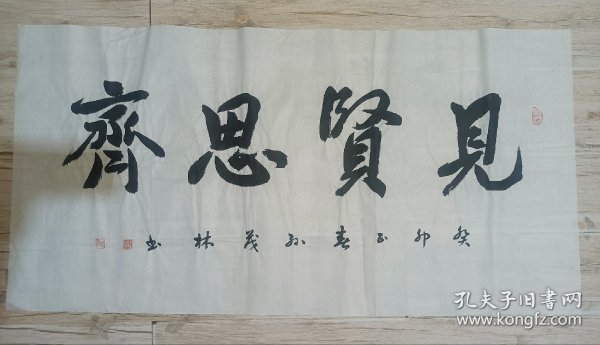 見賢思齊
癸卯正春孙茂林书
孔夫子旧书网
www.kongfz.com